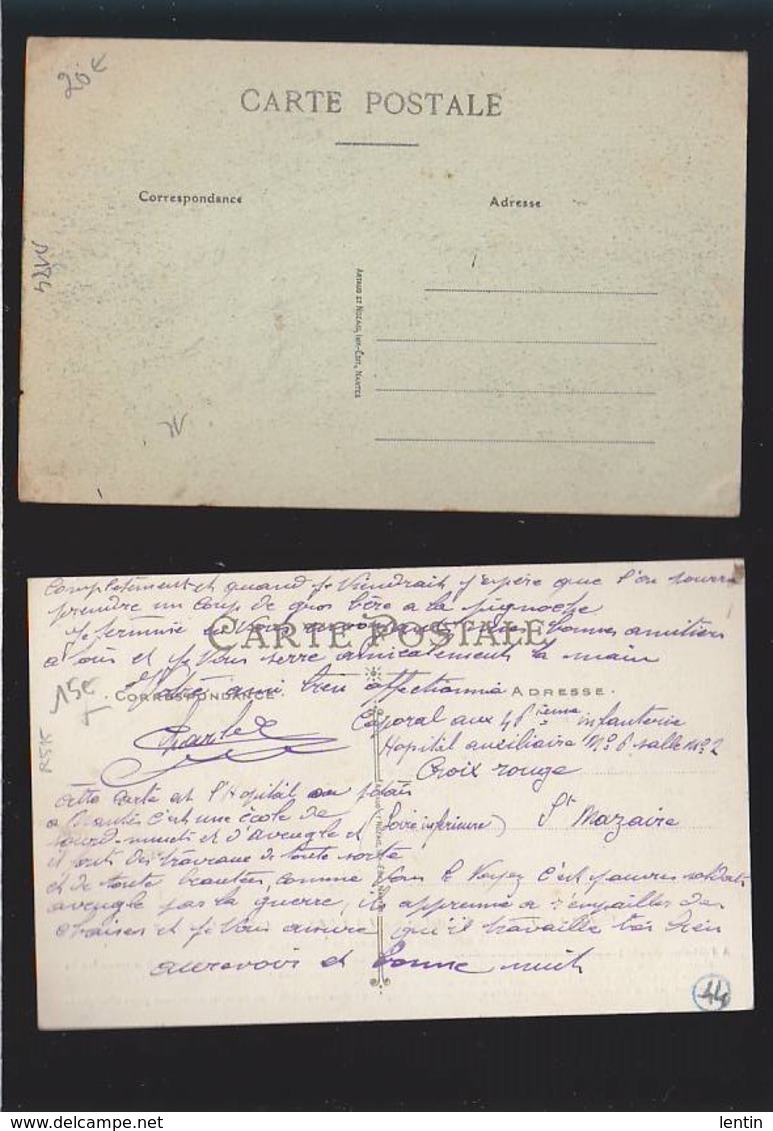 20€
CARTE POSTALE
Correspondance
Adresse
ARTAUD ET NOZAIS, IMP.-ÉDIT., NANTES
completement et quand je Viendrait j'espère que l'on pourra
prendre un coup de gros bère a la
je termine en Vous bonnes amitiés
a tous et je Vous serre amicalement la main
CARTE POSTALE
Votre ami bien affectionné
15€
CORRESPONDANCE
ADRESSE
R515
Charles
Caporal aux 46 ième infanterie
Hopital auxiliaire No 6 salle No 2
Croix rouge
St Nazaire
(Loire inférieure)
cette carte est l'Hopital ou j'étais
a Nantes c'est une école de
sourd-muets et d'aveugle et
il font des travaux de toute sorte
et de toute beautées, comme Vous le Voyez c'est pauvres soldats
aveugle par la guerre, ils apprenne a rempailler des
chaises et je Vous assure qu'il travaille très bien
aurevoir et bonne nuit
44
delcampe.net
lentin